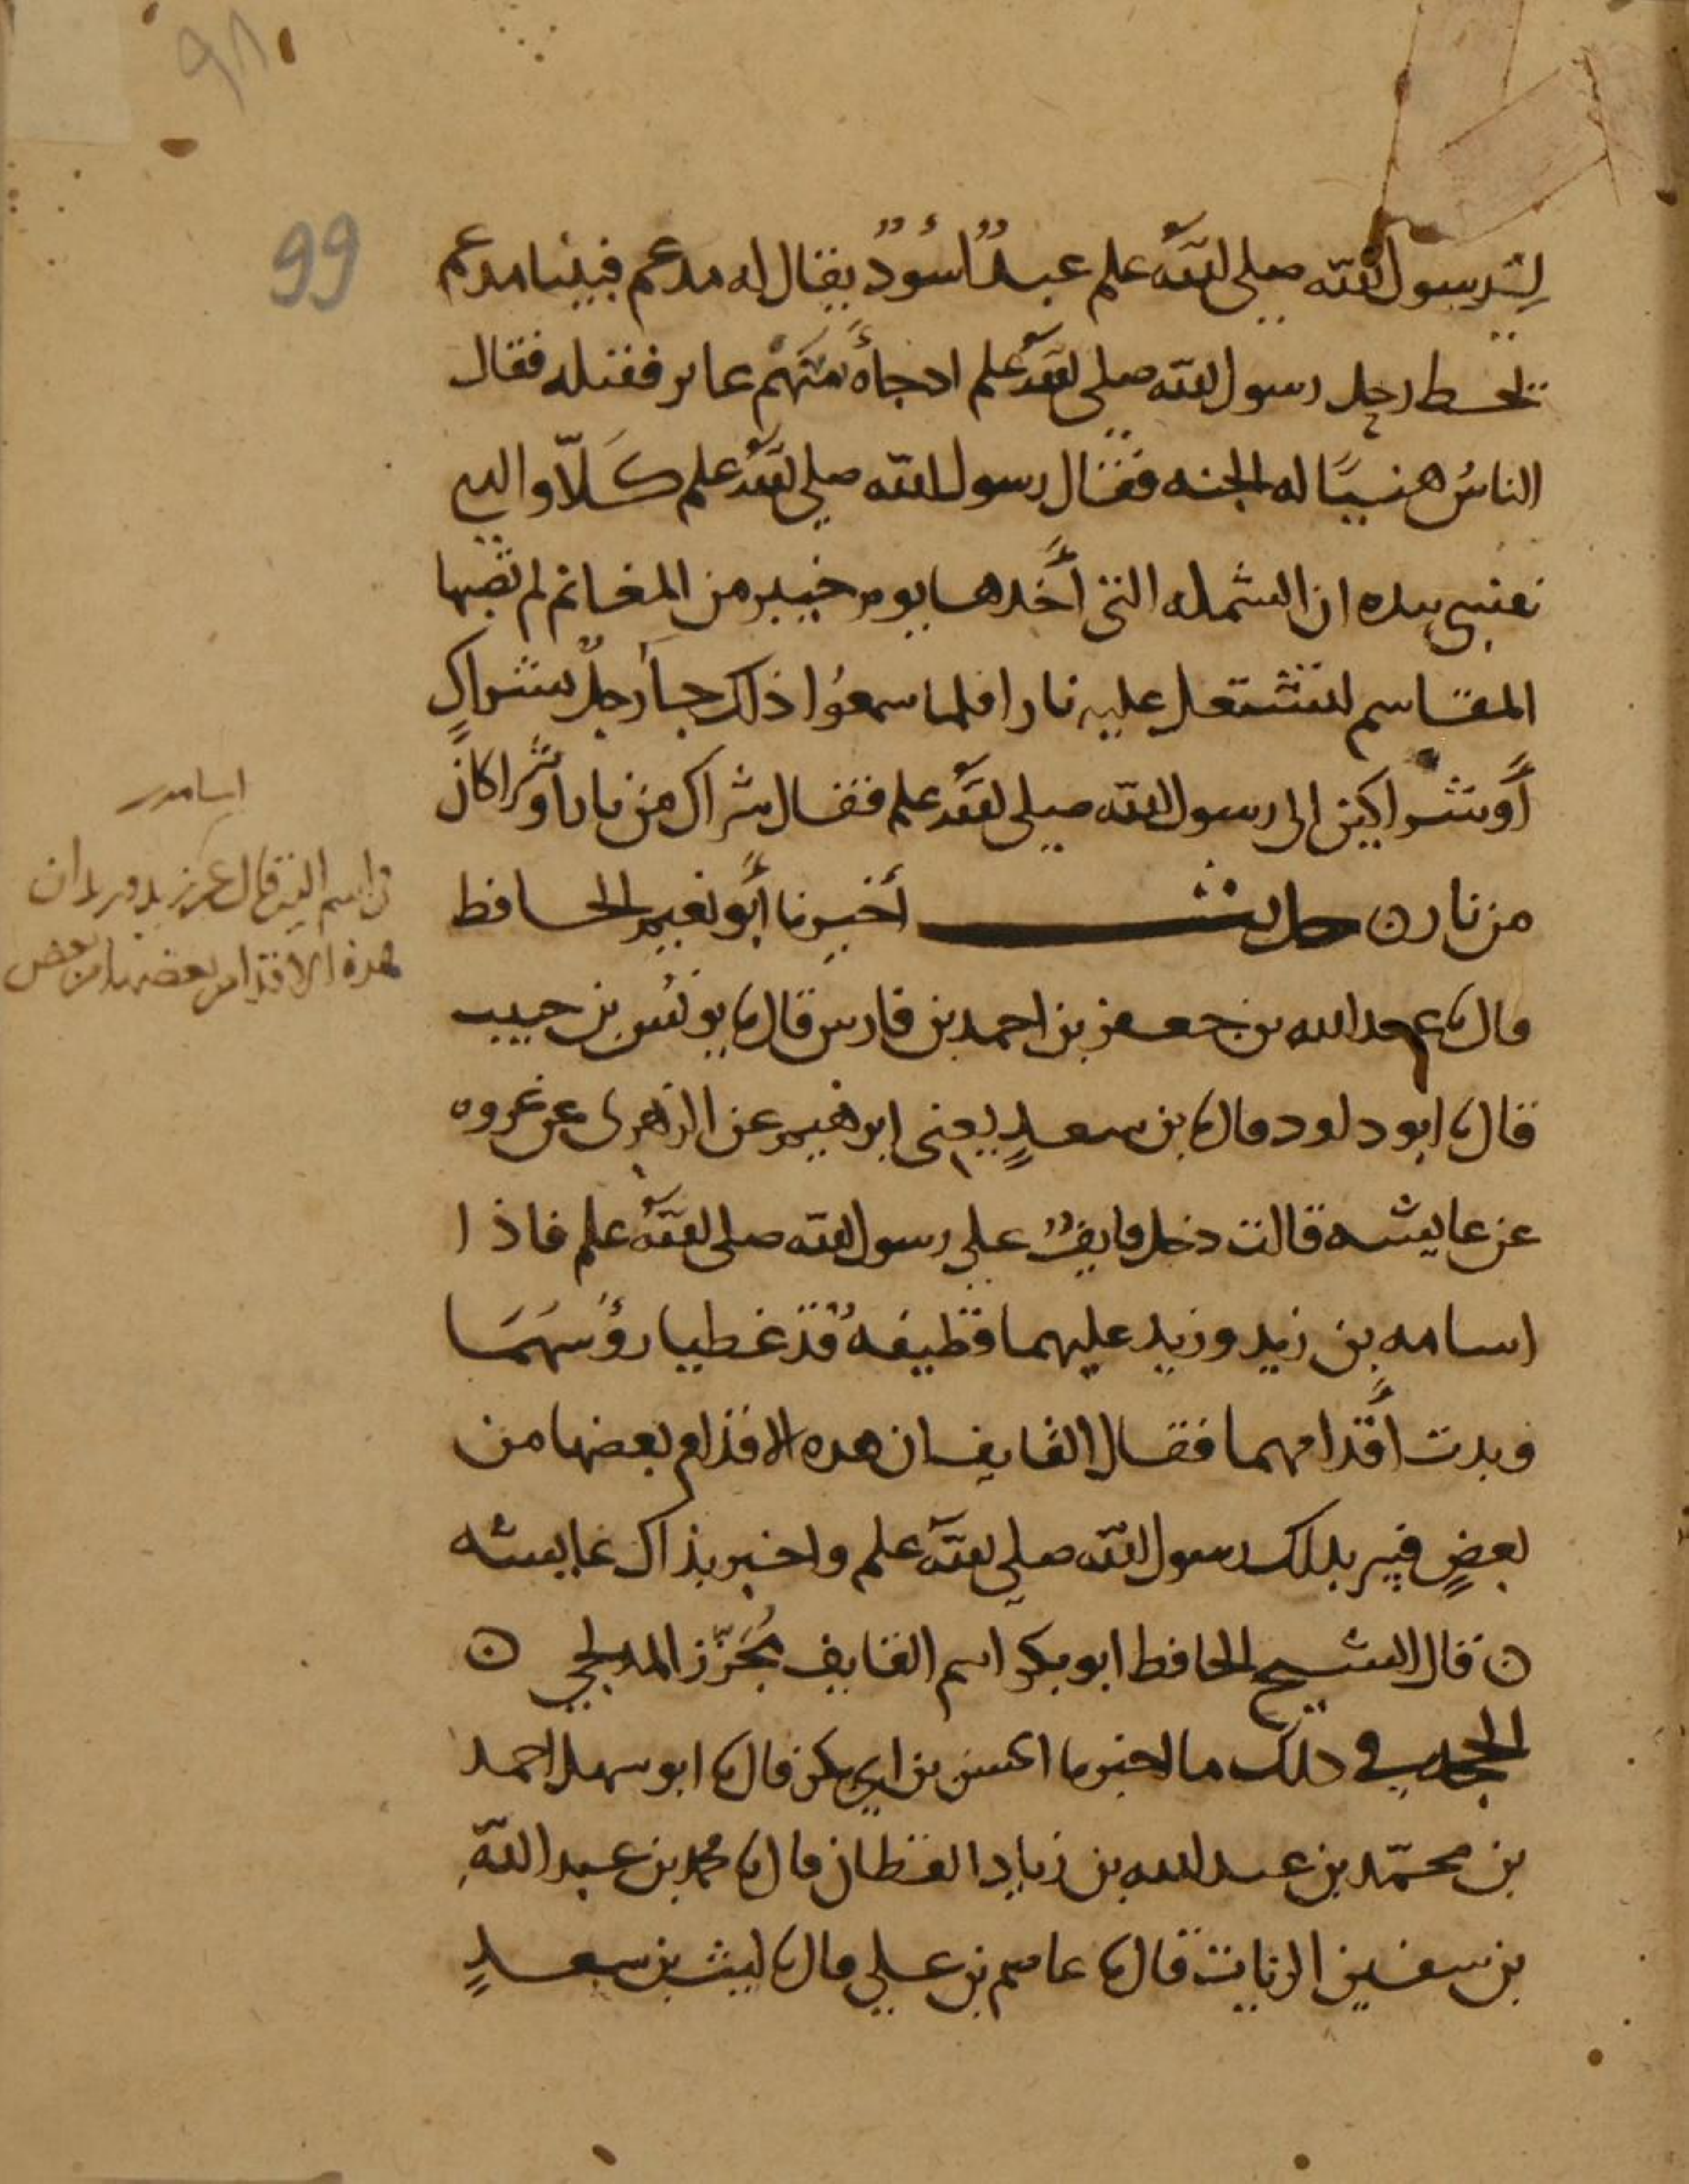 99
لرسول الله صلى الله علم عبدٌ اسْودٌ يقال له مدعم فبينا مدعم
يحط رحل رسول الله صلى الله علم اذ جاءهُ سَهْم عاير فقتله فقال
الناسُ هنيًا له الجنه فقال رسول الله صلى الله علم كَلّا والدي
نفسي بيده ان الشمله التي أخدها يوم خيبر من المغانم لم تصبها
المقاسم لتشتعل عليه نارا فلما سمعُوا ذلك جاَ رجلٌ بشراكٍ
أو شراكين الى رسول الله صلى الله علم فقال شراك من نار او شراكان
من نار ن حديث أخبرنا أبو نعيم الحافظ
قال ثا عبد الله بن جعفر بن احمد بن فارس قال ثا يونُس بن حبيب
قال ثا ابو داود قال ثا بن سعدٍ يعنى ابرهيم عن الزهرى عن عروه
عن عايشه قالت دخل قايفٌ على رسول الله صلى الله علم فاذا
اسامه بن زيد وزيد عليهما قطيفهُ قد غطيا رؤُسهُمَا
وبدت أقدامهما فقال القايف ان هده الاقدام بعضها من
بعضٍ فسر بدلك رسول الله صلى الله علم واخبر بذاك عايشه
ن قال الشيخ الحافظ ابو بكر اسم القايف مُجَزّز المدلجي ن
الحجه في دلك ما اخبرنا الحسن بن ابي بكر قال ثا ابو سهل احمد
بن محمّد بن عبد الله بن زياد القطان قال ثا محمد بن عبد الله
بن سفين الزيات قال ثا عاصم بن علي قال ثا ليث بن سعدٍ
هذه الاقدام بعضها من بعض